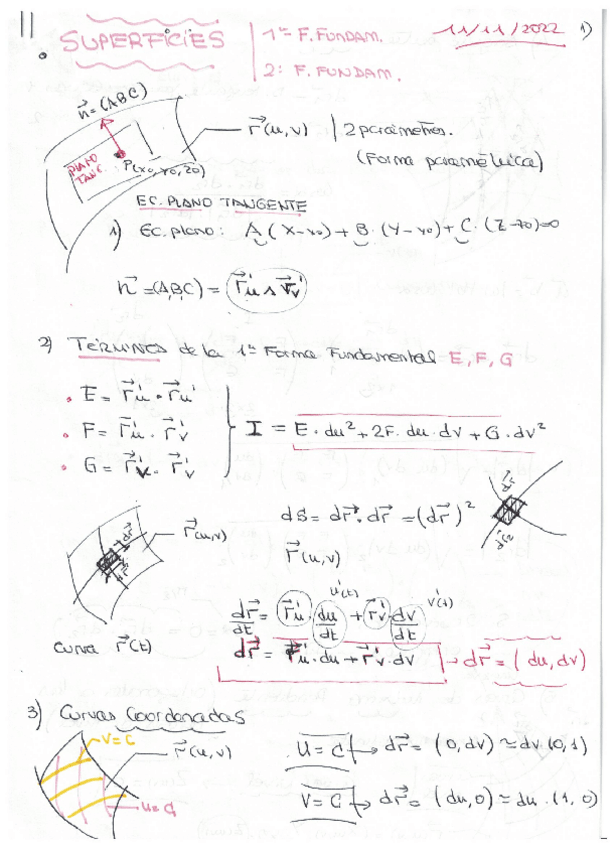 11
SUPERFICIES
1ª F. FUNDAM.
2ª F. FUNDAM.
11/11/2022 1)
n⃗=(ABC)
PLANO TANG.
P(x0,y0,z0)
r⃗(u,v) | 2 parámetros.
(Forma paramétrica)
EC. PLANO TANGENTE
1) Ec. plano: A(X-x0)+B·(Y-y0)+C·(Z-z0)=0
n⃗=(A,B,C) = r⃗u' ∧ r⃗v'
2) TERMINOS de la 1ª Forma Fundamental E, F, G
• E = r⃗u' · r⃗u'
• F = r⃗u' · r⃗v'
• G = r⃗v' · r⃗v'
I = E·du²+2F·du·dv+G·dv²
dr⃗
dr⃗
r⃗(u,v)
ds = dr⃗·dr⃗ = (dr⃗)²
r⃗(u,v)
curva r⃗(t)
u'(t)
v'(t)
dr⃗/dt = r⃗u'·du/dt + r⃗v'·dv/dt
dr⃗ = r⃗u'·du+r⃗v'·dv → dr⃗=(du,dv)
3) Curvas Coordenadas
V=C
r⃗(u,v)
u=C
U=C → dr⃗= (0,dv) ≃ dv(0,1)
V=C → dr⃗= (du,0) ≃ du·(1,0)